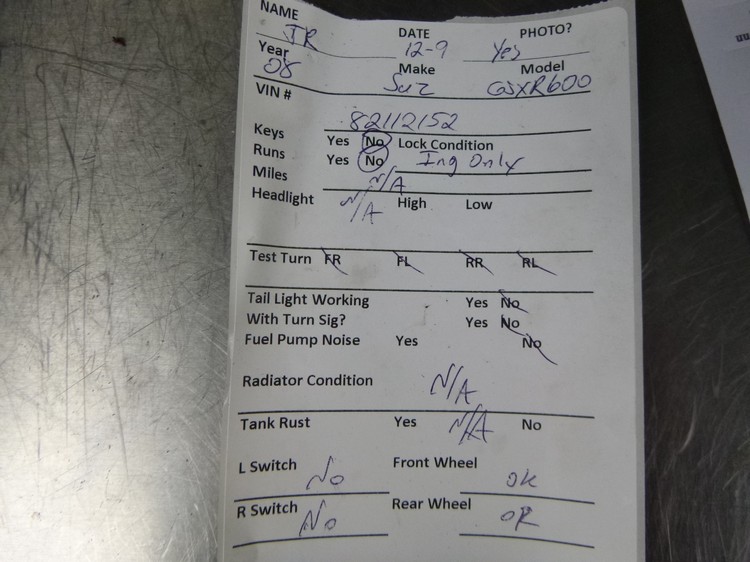 NAME JR DATE 12-9 PHOTO? Yes
Year 08 Make Suz Model GSXR600
VIN # 82112152
Keys Yes No Lock Condition
Runs Yes No Ing Only
Miles N/A
Headlight N/A High Low
Test Turn FR FL RR RL
Tail Light Working Yes No
With Turn Sig? Yes No
Fuel Pump Noise Yes No
Radiator Condition N/A
Tank Rust Yes N/A No
L Switch No Front Wheel ok
R Switch No Rear Wheel OK